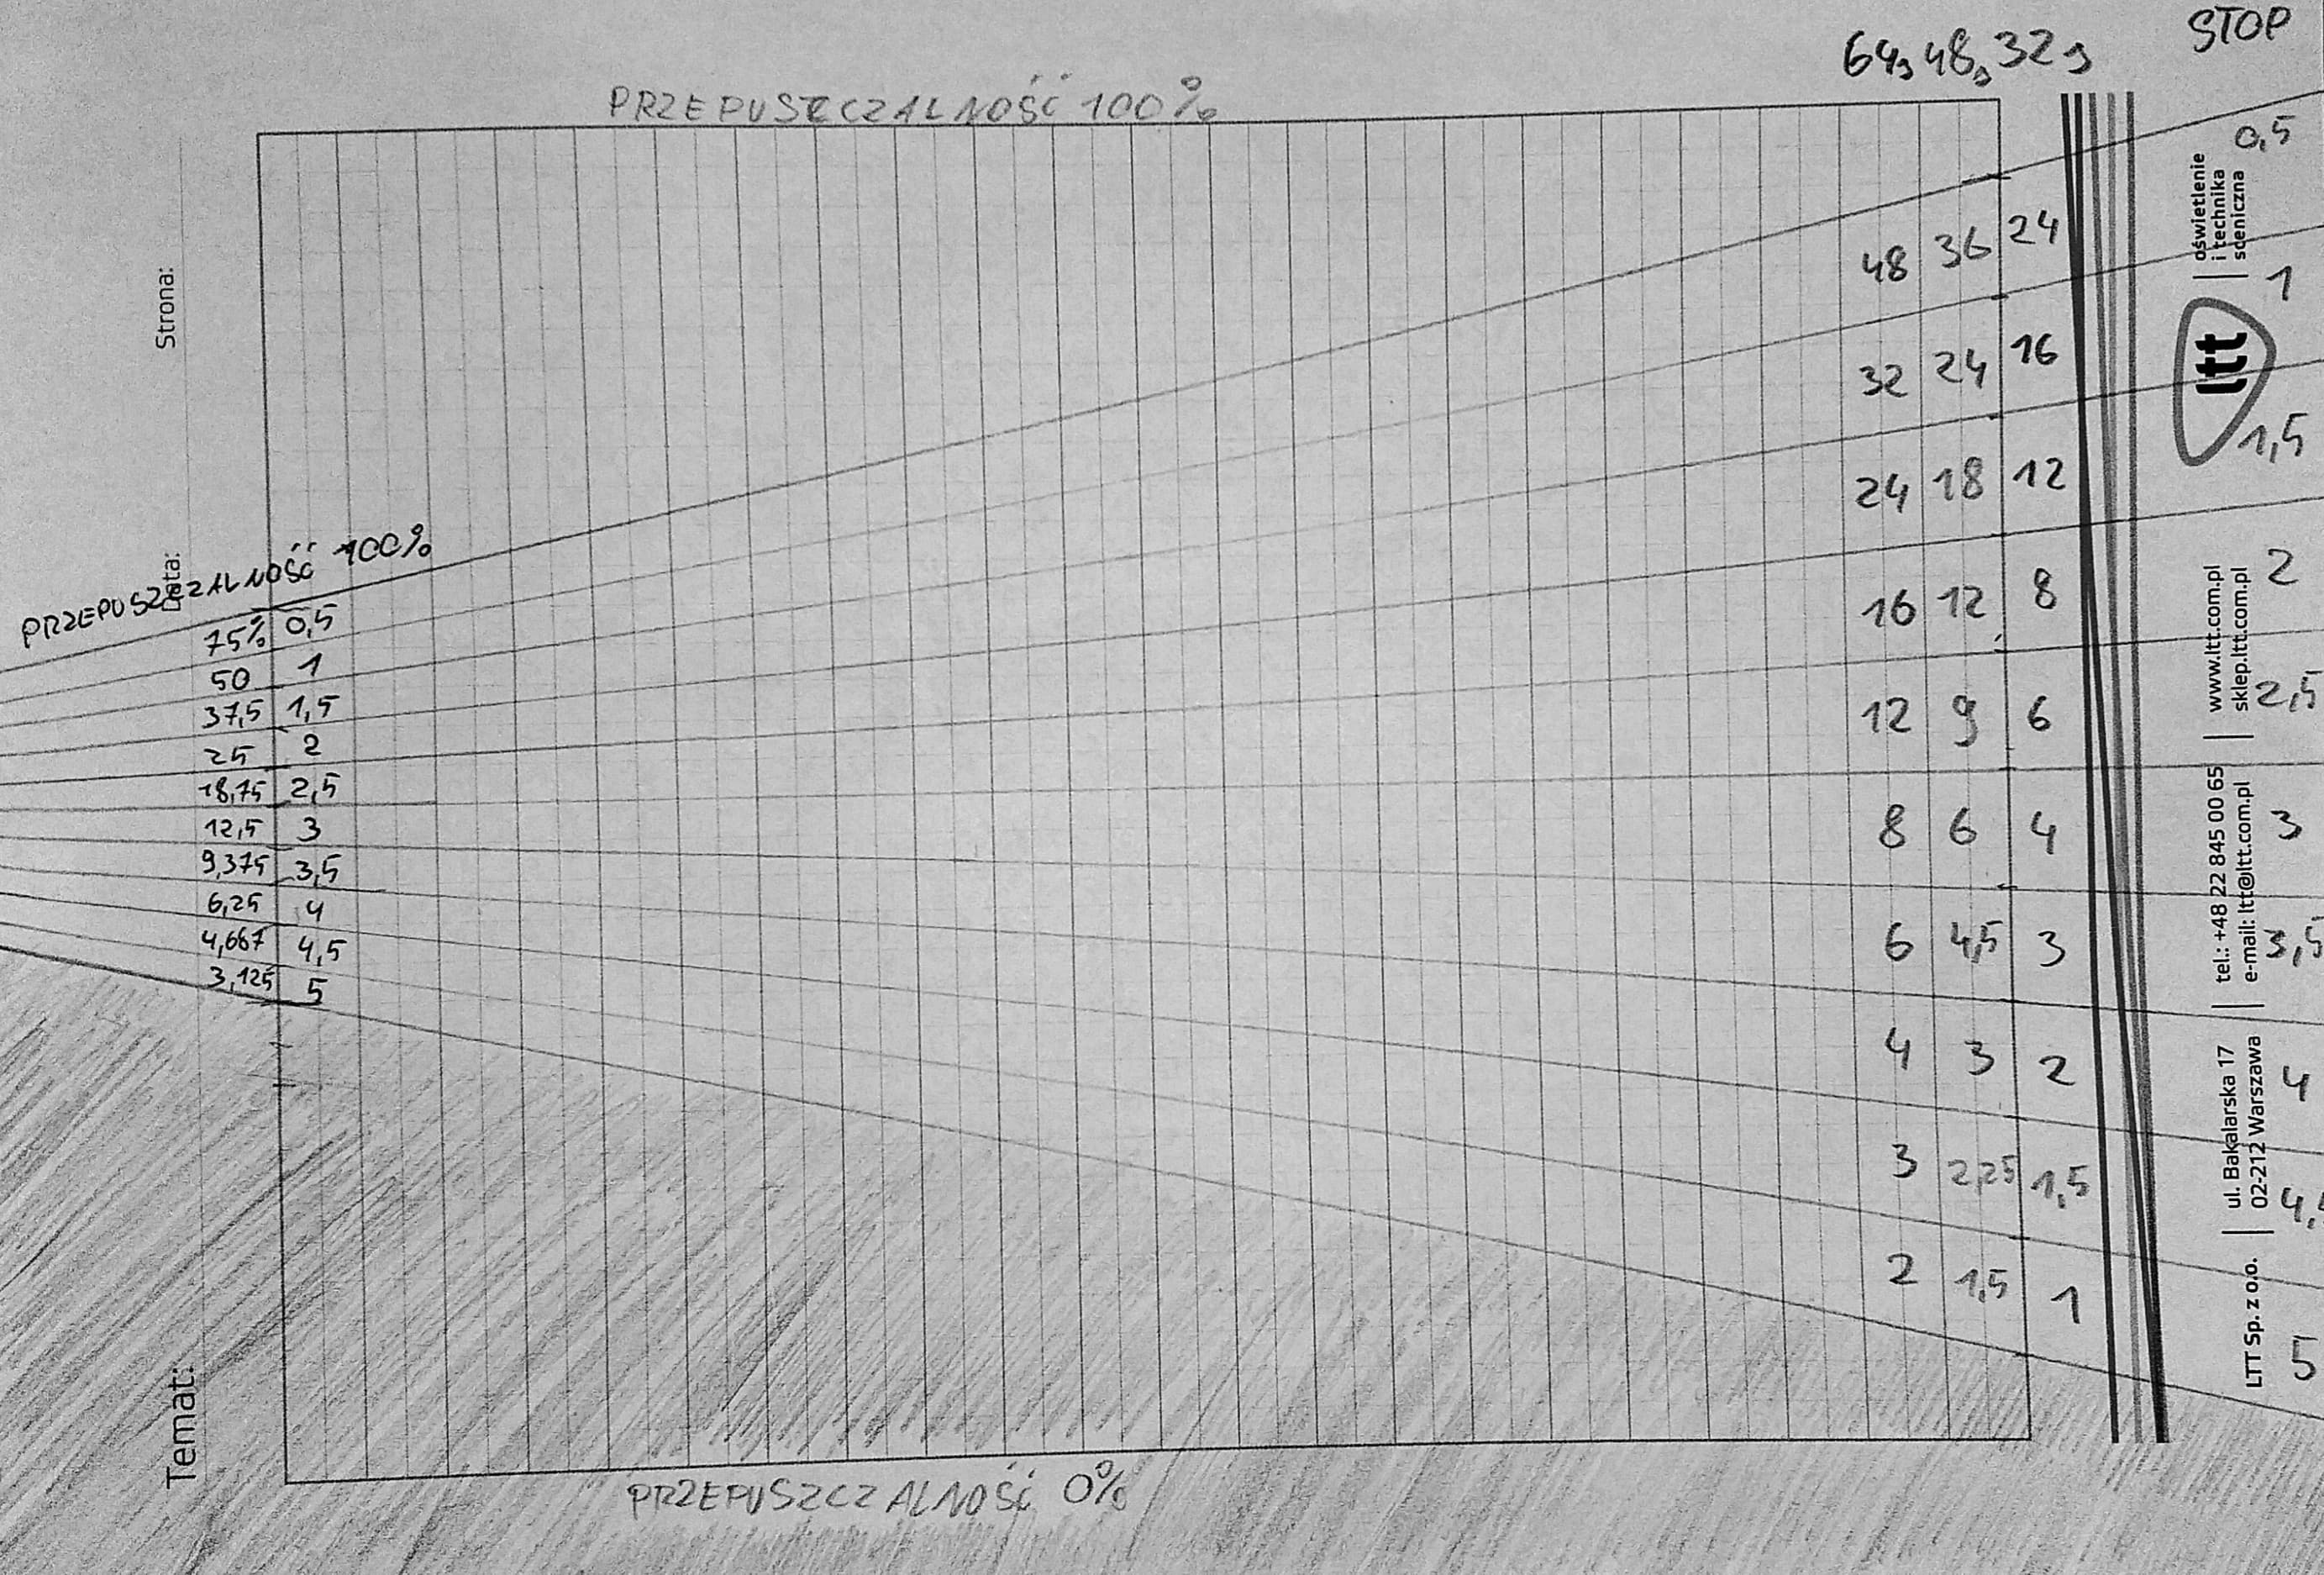 STOP
64, 48, 32,
PRZEPUSZCZALNOŚĆ 100%
0,5
48 36 24
1
32 24 16
1,5
24 18 12
2
16 12 8
2,5
12 9 6
3
8 6 4
3,5
6 4,5 3
4
4 3 2
3 2,25 1,5
2 1,5 1
5
PRZEPUSZCZALNOŚĆ 100%
75% 0,5
50 1
37,5 1,5
25 2
18,75 2,5
12,5 3
9,375 3,5
6,25 4
4,667 4,5
3,125 5
PRZEPUSZCZALNOŚĆ 0%
Strona:
Data:
Temat:
oświetlenie
i technika
sceniczna
ltt
www.ltt.com.pl
sklep.ltt.com.pl
tel.: +48 22 845 00 65
e-mail: ltt@ltt.com.pl
ul. Bakalarska 17
02-212 Warszawa
LTT Sp. z o.o.